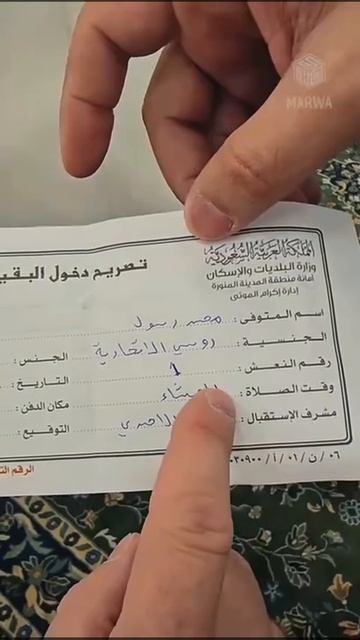 MARWA
المملكة العربية السعودية
وزارة البلديات والإسكان
أمانة منطقة المدينة المنورة
إدارة إكرام الموتى
تصريح دخول البقي
اسم المتوفى : محمد رسول
الجنسية : روسي الاتحادية الجنس :
رقم النعش : 1 التاريخ :
وقت الصلاة : العشاء مكان الدفن :
مشرف الاستقبال : التوقيع :
الرقم